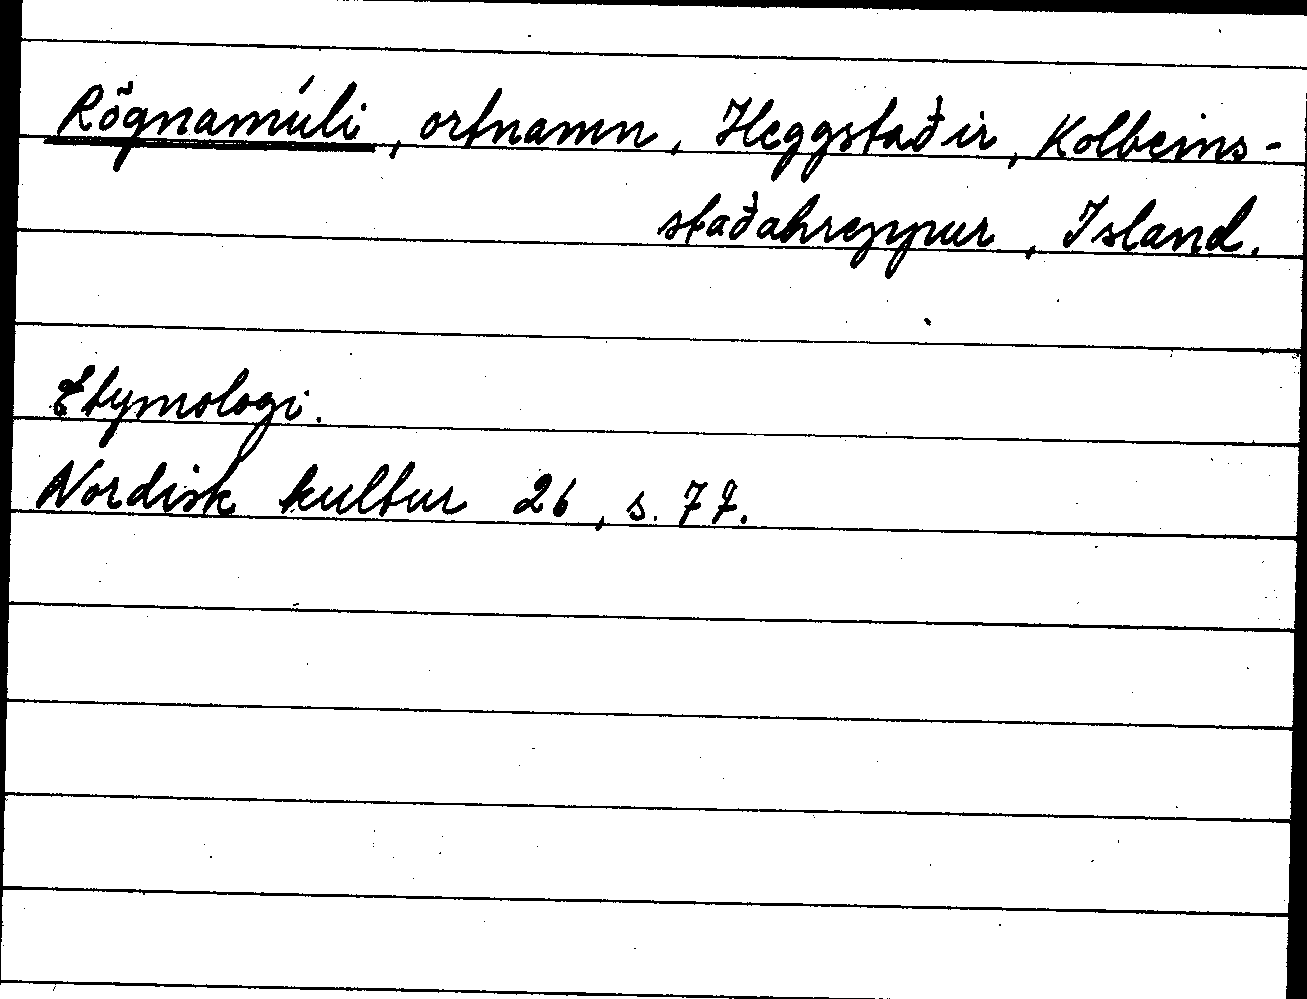 Rögnamúli, ortnamn, Heggstaðir, Kolbeins-
staðahreppur, Island.
Etymologi.
Nordisk kultur 26, s. 77.